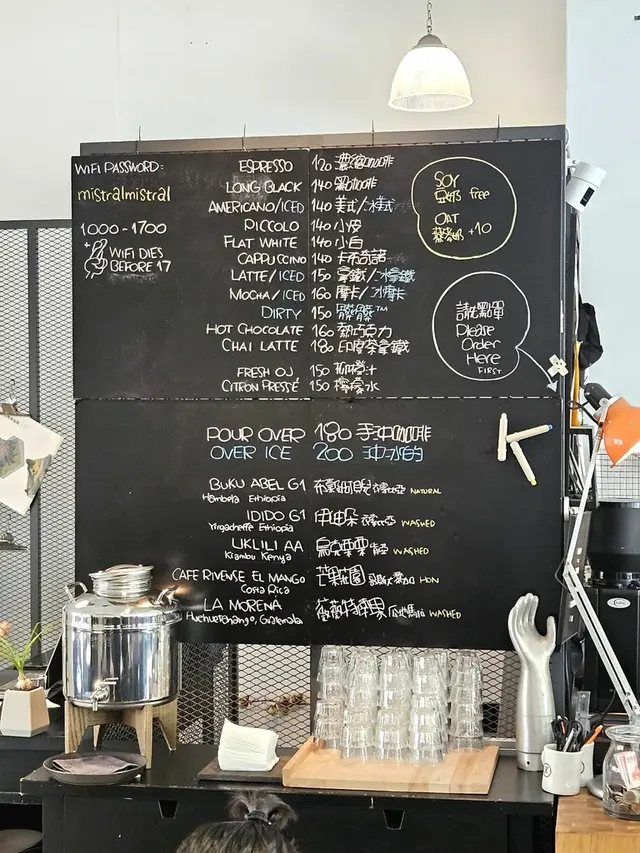 WIFI PASSWORD:
mistralmistral
1000-1700
WIFI DIES
BEFORE 17
ESPRESSO 120 濃縮咖啡
LONG BLACK 140 黑咖啡
AMERICANO/ICED 140 美式/冰美式
PICCOLO 140 小皮
FLAT WHITE 140 小白
CAPPUCCINO 140 卡布奇諾
LATTE/ICED 150 拿鐵/冰拿鐵
MOCHA/ICED 160 摩卡/冰摩卡
DIRTY 150 髒髒™
HOT CHOCOLATE 160 熱巧克力
CHAI LATTE 180 印度茶拿鐵
FRESH OJ 150
CITRON PRESSÉ 150 檸檬水
SOY
豆奶 free
OAT
燕麥奶 +10
請先點單
Please
Order
Here
FIRST
POUR OVER 180 手沖咖啡
OVER ICE 200 沖冰的
BUKU ABEL G1 NATURAL
Hambela Ethiopia
IDIDO G1 伊迪朵 WASHED
Yirgacheffe Ethiopia
UKLILI AA WASHED
Kiambu Kenya
CAFE RIVENSE EL MANGO 芒果莊園 HON
Costa Rica
LA MORENA WASHED
Huehuetenango, Guatemala